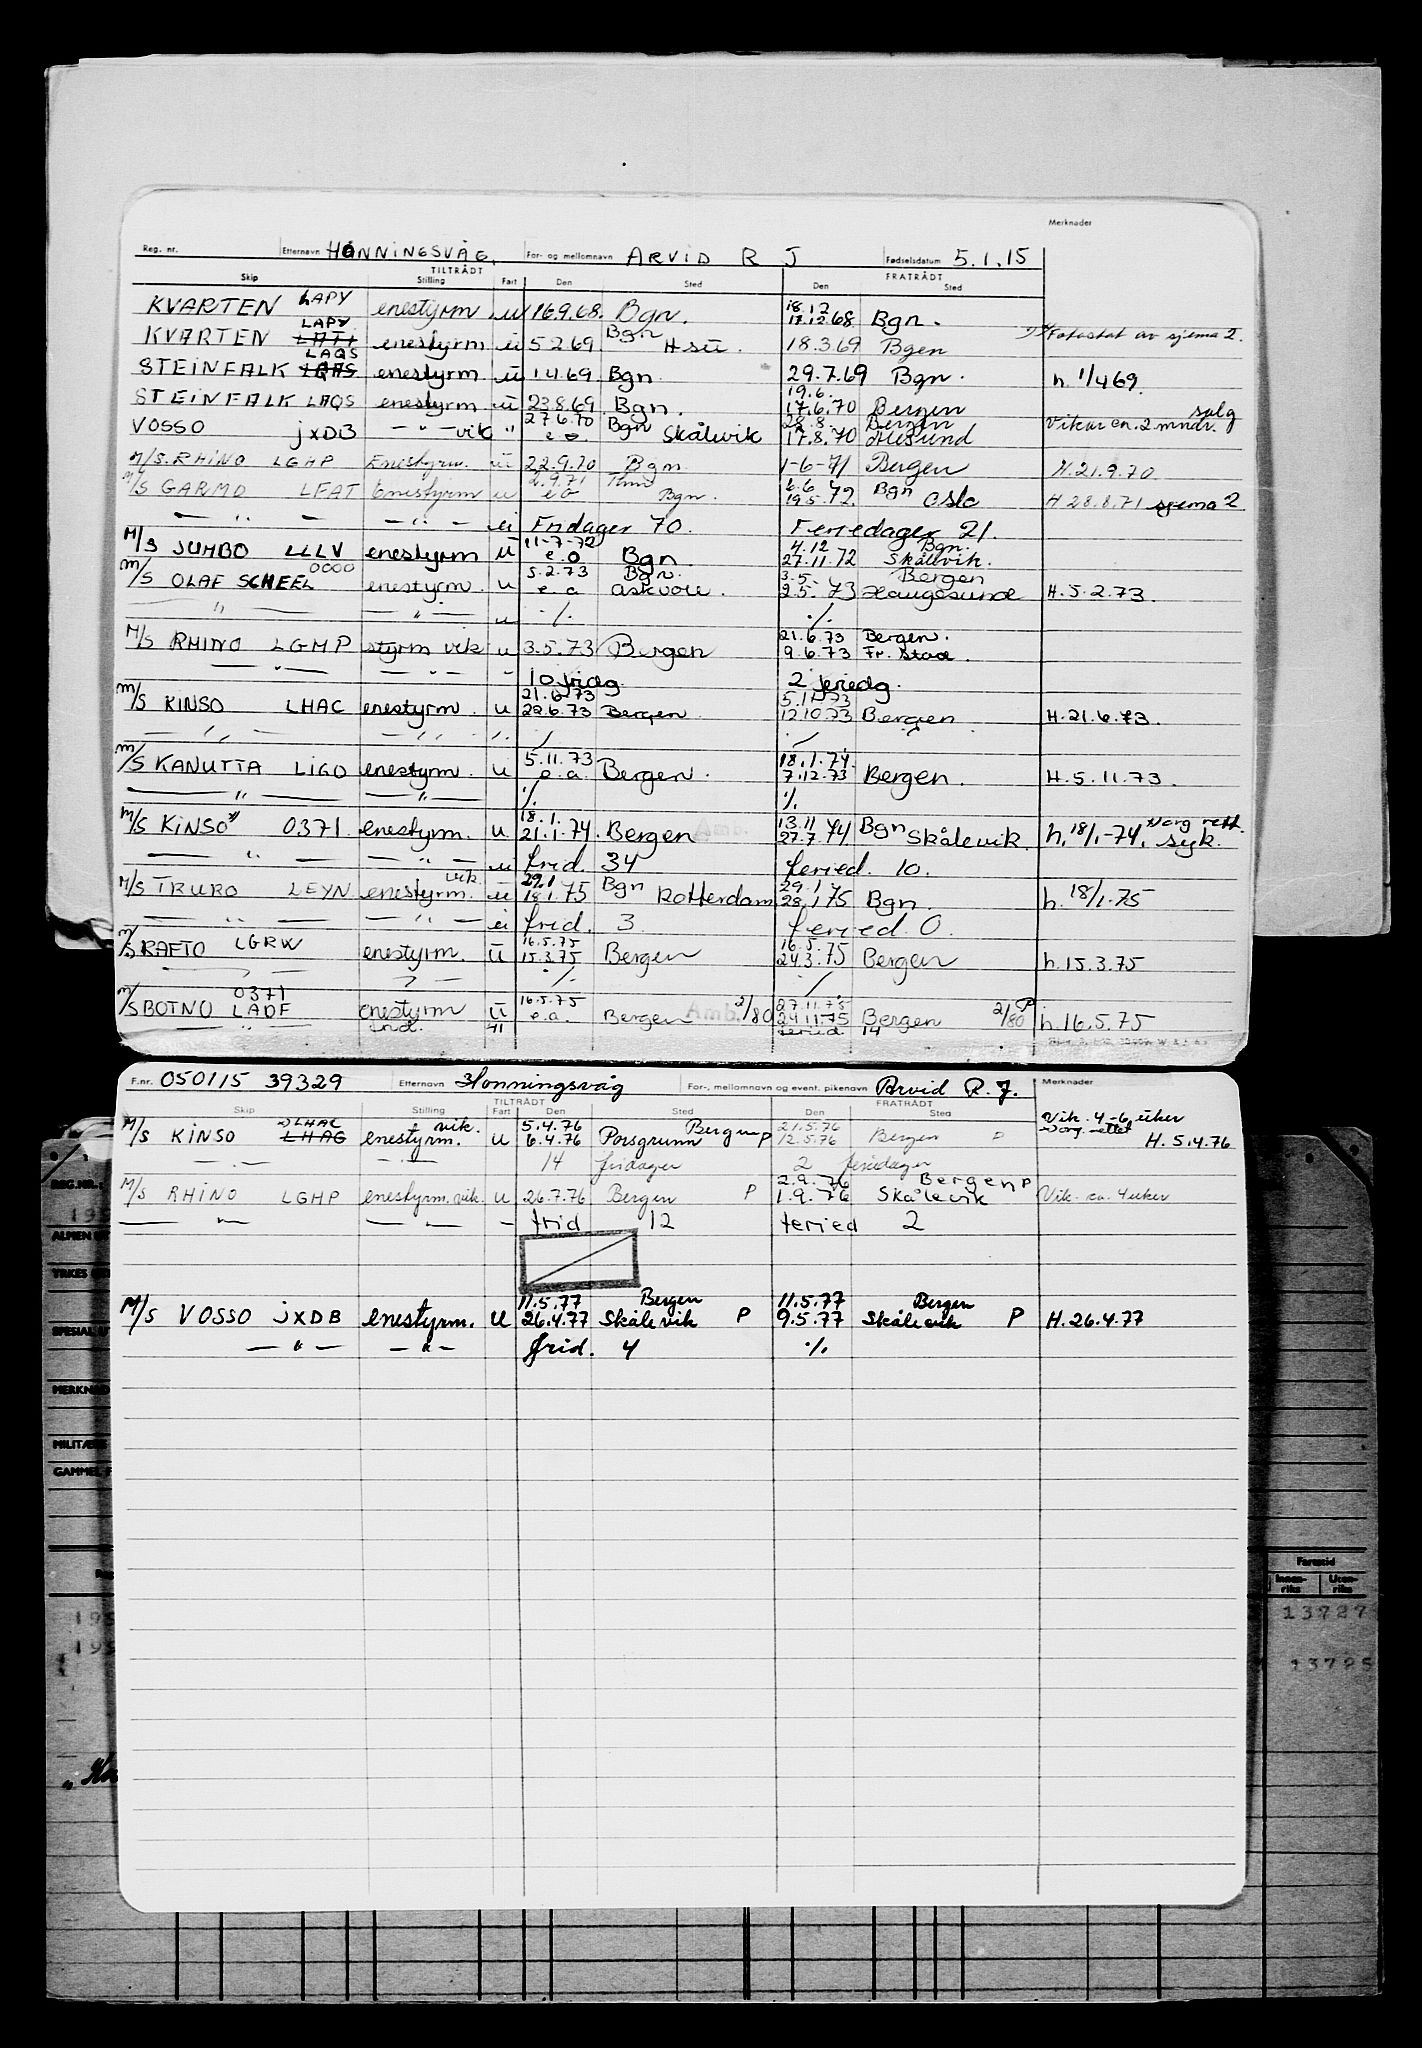 Merknader
Reg. nr. Etternavn HONNINGSVÅG. For- og mellomnavn ARVID R J Fødselsdatum 5.1.15
TILTRÅDT FRATRÅDT
Skip Stilling Fart Den Sted Den Sted
KVARTEN LAPY enestyrm u 16.9.68. Bgn. 18.12 17.12.68 Bgn.
KVARTEN LAPY enestyrm u 5 2 69 Bgn H su. 18.3.69 Bgen Fotostat av sjema 2.
STEINFALK LAQS enestyrm u 1.4.69 Bgn. 29.7.69 Bgn. h. 1/4 69.
STEINFALK LAQS enestyrm u 23.8.69 Bgn. 19.6. 17.6.70 Bergen
VOSSO jXDB — " — vik " 27.6.70 e.o. Bgn Skålevik 28.8. 17.8.70 Bergen Ålesund Vikar ca. 2 mndr. salg
M/S. RHINO LGHP Enestyrm. u 22.9.70 Bgn. 1-6-71 Bergen H.21.9.70
M/S GARMO LFAT Enestyrm u 2.9.71 e o Bgn. 6.6 19.5.72. Bgn Oslo H 28.8.71 sjema 2
— " — — " — u Fridager 70. Feriedager 21.
M/S JUMBO LLLV enestyrm u 11-7-72 e.o Bgn 4.12 27.11.72 Bgn. Skålevik.
M/S OLAF SCHEEL 0000 enestyrm. u 5.2.73 e.a Bgn. Askvoll. 3.5. 2.5.73 Bergen Haugesund H.5.2.73.
— " — — " — u ./. ./.
M/S RHINO LGHP styrm vik u 3.5.73 Bergen 21.6.73 9.6.73 Bergen. Fr. stad.
— " — — " — " 10 fridg 2 feriedg.
M/S KINSO LHAC enestyrm. u 21.6.73 22.6.73 Bergen 5.11.73 12.10.73 Bergen H.21.6.73.
— " — — " — " ./. ./.
M/S KANUTTA LIGO enestyrm. u 5.11.73 e.a. Bergen. 18.1.74. 7.12.73 Bergen. H.5.11.73.
— " — — " — ./. ./.
M/S KINSO 0371 enestyrm. u. 18.1. 21.1.74. Bergen 13.11 27.7.74 Bgn Skålevik. h. 18/1.-74, syk.
— " — — " — u frid. 34 feried. 10.
M/S TRURO LEYN enestyrm. vik. u 29.1 18.1.75 Bgn Rotterdam 29.1 28.1.75 Bgn. h. 18/1.75
— " — — " — u frid. 3 feried. 0.
M/S RAFTO LGRW enestyrm. u 16.5.75 15.3.75 Bergen 16.5. 24.3.75 Bergen h.15.3.75
— " — ./. ./.
M/S BOTNO 0371 LADF enestyrm u 16.5.75 e.a. Bergen Amb. 2/80 27.11.75 24.11.75 Bergen 2/80 P h.16.5.75
— " — frid. 41 feried 14
F.nr. 050115 39329 Etternavn Honningsvåg For-, mellomnavn og event. pikenavn Arvid R. J. Merknader
TILTRÅDT FRATRÅDT
Skip Stilling Fart Den Sted Den Sted
M/S KINSO LHAC LHAG enestyrm. vik. u 5.4.76 6.4.76 Porsgrunn Bergen P 21.5.76 12.5.76 Bergen P Vik. 4-6 uker H. 5.4.76
— " — — " — 14 fridager 2 feriedager
M/S RHINO LGHP enestyrm. vik. u 26.7.76 Bergen P 2.9.76 1.9.76 Bergen P Skålevik Vik. ca. 4 uker
— " — — " — – frid 12 feried 2
M/S VOSSO jXDB enestyrm. u 11.5.77 26.4.77 Bergen Skålevik P 11.5.77 9.5.77 Bergen Skålevik P H.26.4.77
— " — — " — frid. 4 ./.
REG.NR.:
MILITÆR
Farestid
Innen-riks Uten-riks
13727
13795